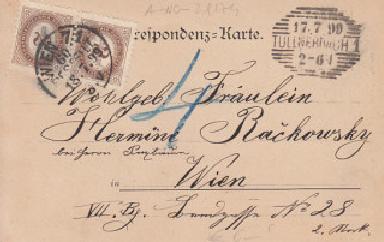 A-NO-
respondenz-Karte.
WIEN 7/1
17.7.90
TULLNERBACH 1
2-6
4
Wohlgeb Fräulein
Hermine Račkowsky
bei Herrn
in Wien
VII. Bz. Landgasse No 28
2. Stock.